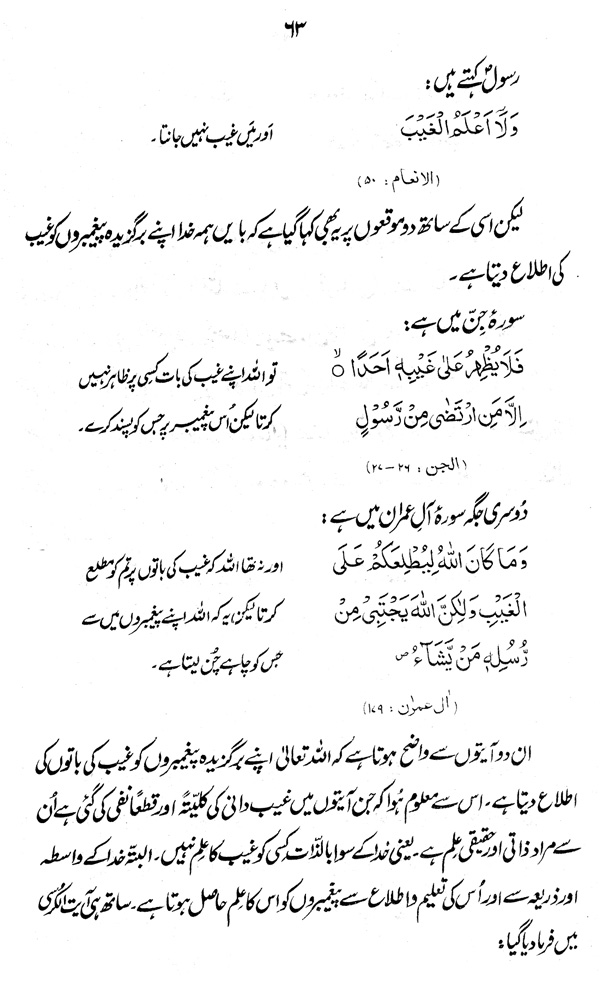 ۶۳
رسولؐ کہتے ہیں:
وَلَآ اَعْلَمُ الْغَیْبَ اور میں غیب نہیں جانتا۔
(الانعام: ۵۰)
لیکن اسی کے ساتھ دو موقعوں پر یہ بھی کہا گیا ہے کہ بایں ہمہ خدا اپنے برگزیدہ پیغمبروں کو غیب
کی اطلاع دیتا ہے۔
سورۂ جِنّ میں ہے:
فَلَا یُظْهِرُ عَلٰی غَیْبِهٖٓ اَحَدًا ۙ تو اللہ اپنے غیب کی بات کسی پر ظاہر نہیں
اِلَّا مَنِ ارْتَضٰی مِنْ رَّسُوْلٍ کرتا لیکن اُس پیغمبر پر جس کو پسند کرے۔
(الجن: ۲۶–۲۷)
دُوسری جگہ سورۂ آلِ عمران میں ہے:
وَمَا کَانَ اللّٰهُ لِیُطْلِعَکُمْ عَلَی اور نہ تھا اللہ کہ غیب کی باتوں پر تم کو مطلع
الْغَیْبِ وَلٰکِنَّ اللّٰهَ یَجْتَبِیْ مِنْ کرتا لیکن یہ کہ اللہ اپنے پیغمبروں میں سے
رُّسُلِهٖ مَنْ یَّشَآءُ ص جس کو چاہے چُن لیتا ہے۔
(اٰلِ عمرٰن: ۱۷۹)
ان دو آیتوں سے واضح ہوتا ہے کہ اللہ تعالیٰ اپنے برگزیدہ پیغمبروں کو غیب کی باتوں کی
اطلاع دیتا ہے۔ اس سے معلوم ہُوا کہ جن آیتوں میں غیب دانی کی کلیتہً اور قطعاً نفی کی گئی ہے اُن
سے مراد ذاتی اور حقیقی عِلم ہے۔ یعنی خدا کے سوا بالذّات کِسی کو غیب کا عِلم نہیں۔ البتّہ خدا کے واسطہ
اور ذریعہ سے اور اُس کی تعلیم و اطلاع سے پیغمبروں کو اس کا عِلم حاصل ہوتا ہے۔ ساتھ ہی آیت الکرسی
میں فرما دیا گیا: